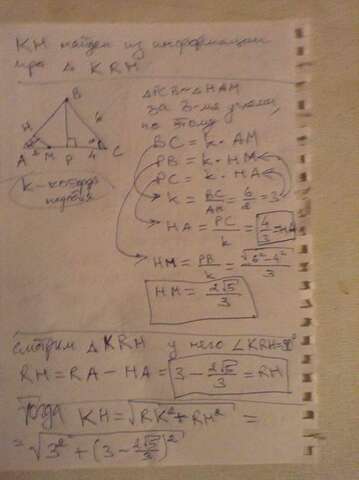 KH найдем из информации
про △ KRH
B
H
6
A
2
M
P
4
C
k - коэфф.
подобия
△PCB ~ △HAM
за 2-мя углами,
по тому
BC = k · AM
PB = k · HM
PC = k · HA
k = BC/AM = 6/2 = 3
HA = PC/k = 4/3 = HA
HM = PB/k = √(6²-4²)/3
HM = 2√5/3
смотрим △KRH у него ∠KRH=90°
RH = RA - HA = 3 - 2√5/3 = RH
Тогда KH = √(RK² + RH²) =
= √(3² + (3 - 2√5/3)²)